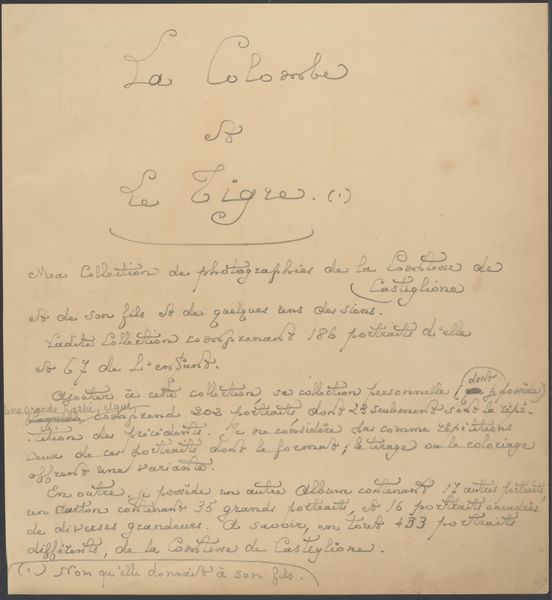 La Colombe
et
Le Tigre. (1)
Ma Collection de photographies de la Comtesse de
Castiglione
et de son fils et de quelques uns des siens.
Ladite Collection comprenant 186 portraits d'elle
et 67 de L'enfant.
Ajouter à cette collection, sa collection personnelle (dont
je possède
une grande partie, et qui
comprend 202 portraits dont seulement sont la répé-
tition des précédents. Je ne considère pas comme répétitions
ceux de ces portraits dont le format, le tirage ou le coloriage
offrent une variante.
En outre, je possède un autre Album contenant 17 autres portraits
un Carton contenant 35 grands portraits, et 16 portraits encadrés
de diverses grandeurs. A savoir, en tout 433 portraits
différents, de la Comtesse de Castiglione.
(1) Nom qu'elle donnait à son fils.